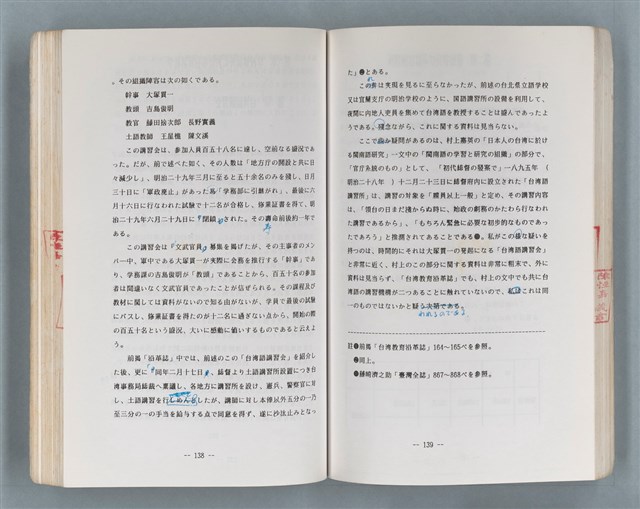 。その組織陣容は次の如くである。
幹事　大塚貫一
教頭　吉島俊明
教官　藤田捨次郎　長野實義
土語教師　王星樵　陳文溪
この講習会は、参加人員百五十八名に達し、空前なる盛況であ
った。だが、前で述べた如く、その人数は「地方庁の開設と共に日
々減少し」、明治二十九年三月に至ると五十余名のみを残し、日月
三十日に「軍政廃止」があった為「学務部に引継がれ」、最後に六
月十六日に行なわれた試験で十二名が合格し、修業証書を得て、明
治二十九年六月二十九日に閉鎖された。その壽命前後約一年で
ある。
この講習会は「文武官員」募集を掲げたが、その主事者のメン
バー中、軍中である大塚貫一が実際に会務を推行する「幹事」であ
り、学務課の吉島俊明が「教頭」であることから、百五十名の参加
者は間違いなく文武官員であったことが信ぜられる。その課程及び
教材に関しては資料がないので知る由がないが、学員で最後の試験
にパスし、修業証書を得たのが十二名に過ぎない点から、開始の際
の百五十名という盛況、大いに感動に値いするものであると云えよ
う。
前掲「沿革誌」中では、前述のこの「台湾語講習会」を紹介し
た後、更に「同年二月十七日、総督より土語講習所設置につき台
湾事務局総裁へ稟議し、各地方に講習所を設け、憲兵、警察官に対
し、土語講習を行しめんとしたが、講師に対し本俸以外五分の一乃
至三分の一の手当を給与する点で同意を得ず、遂に沙汰止みとなっ
-- 138 --
た」❷とある。
この挙は実現を見るに至らなかったが、前述の台北県立語学校
又は宜蘭支庁の明治学校のように、国語講習所の設備を利用して、
夜間に内地人吏員を集めて台湾語を教授することは盛んであったよ
うである。残念ながら、これに関する資料は見当らない。
ここで疑問があるのは、村上嘉英の「日本人の台湾に於け
る閩南語研究」一文中の「閩南語の学習と研究の組織」の部分で、
「官庁系統のもの」として、「初代総督の発案で」一八九五年（
明治二十八年　）十二月二十三日に総督府内に設立された「台湾語
講習所」は、講習の対象を「雇員以上一般」と定め、その講習内容
は、「領台の日まだ浅からぬ時に、始政の劇務のかたわら行なわれ
た講習であるから」、「もちろん緊急に必要な初歩的なものであっ
たであろう」と推測されてあることである❸。私がこの様な疑いを
持つのは、時間的にそれは大塚貫一の発起になる「台湾語講習会」
と非常に近く、村上のこの部分に関する資料は非常に粗末で、外に
資料は見当らず、「台湾語講習所」でも、村上の文中でも共に台
湾語の講習機構が二つあることに触れていないので、私はこれは同
一のものではないかと疑う次第である。
われるのである
註❶前掲「台湾教育沿革誌」164～165ぺを参照。
❷同上。
❸藤崎濟之助「臺灣全誌」867～868ぺを参照。
-- 139 --